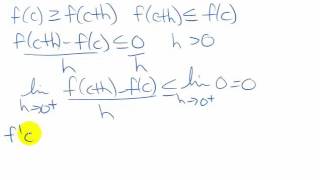 f(c) ≥ f(c+h)   f(c+h) ≤ f(c)
(f(c+h) - f(c))/h ≤ 0/h   h > 0
lim h→0⁺ (f(c+h) - f(c))/h ≤ lim h→0⁺ 0 = 0
f'c